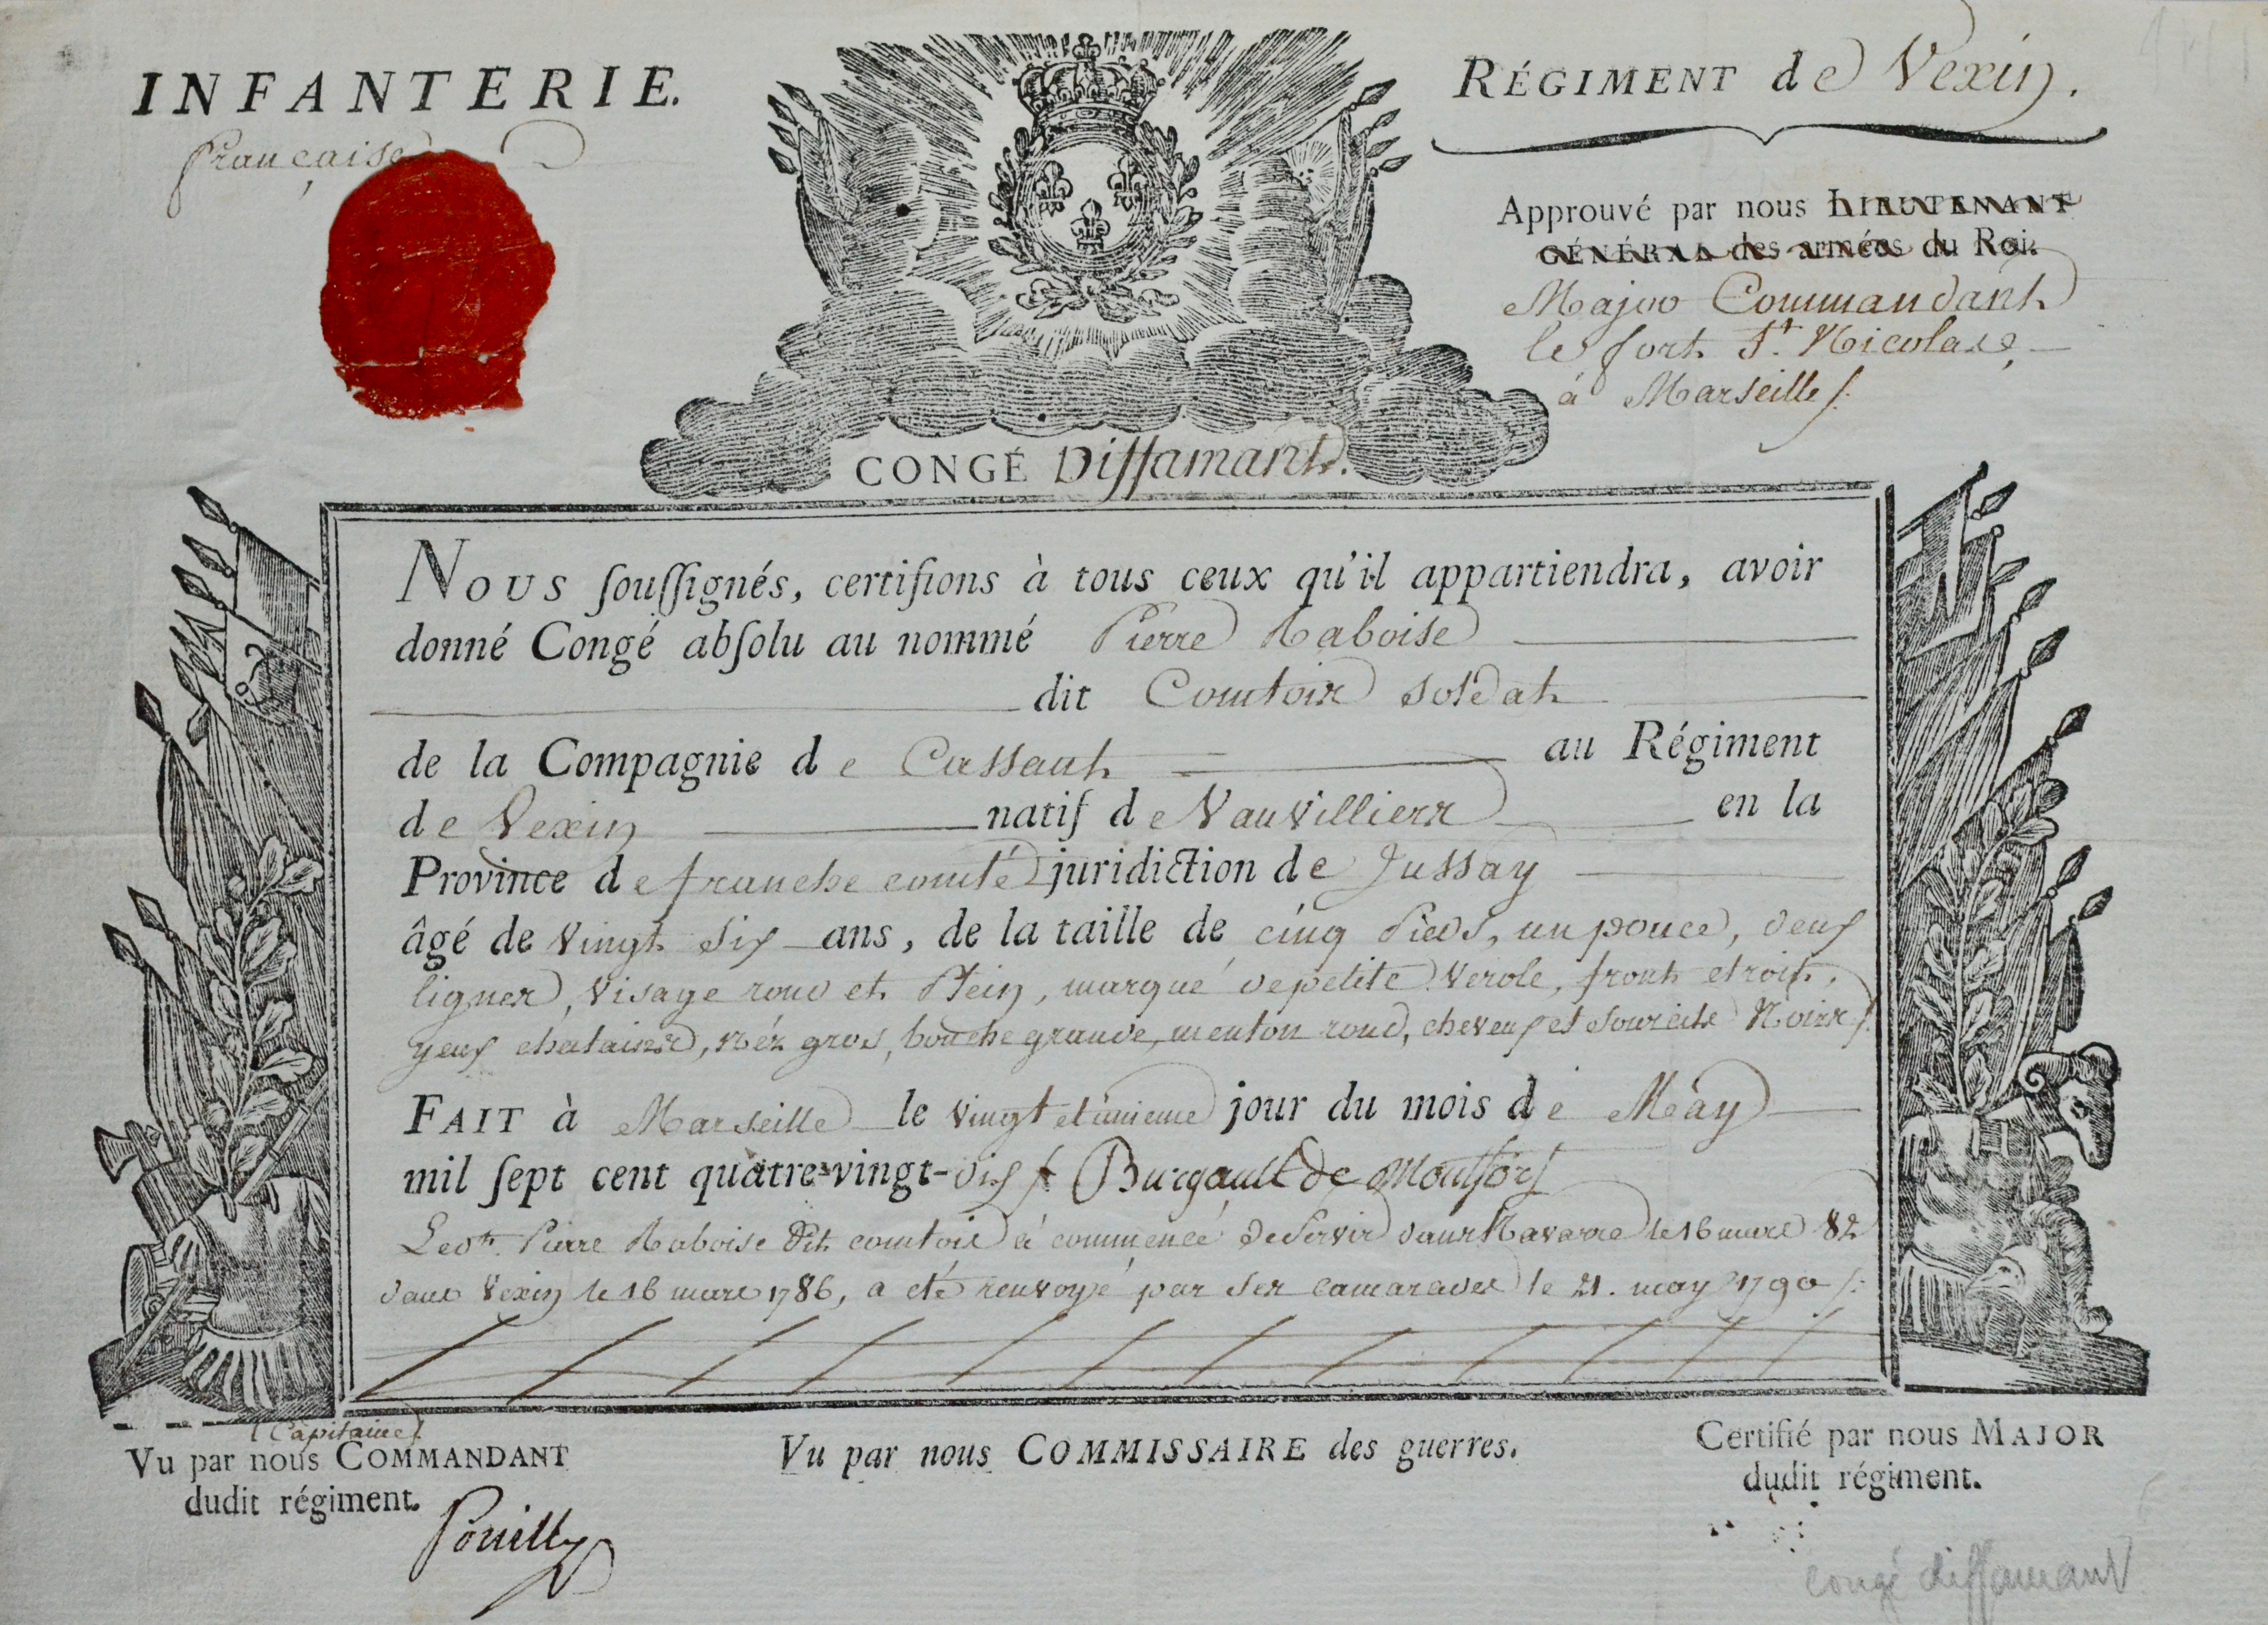 INFANTERIE.
française
RÉGIMENT de Vexin.
Approuvé par nous LIEUTENANT
GÉNÉRAL des armées du Roi.
Major Commandant
le fort St. Nicolas
à Marseille
CONGÉ Diffamant.
Nous souſſignés, certifions à tous ceux qu'il appartiendra, avoir
donné Congé abſolu au nommé Pierre Raboise
dit Comtois soldat
de la Compagnie de Cassant au Régiment
de Vexin natif de Vauvilliers en la
Province de franche comté juridiction de Jussay
âgé de vingt six ans, de la taille de cinq pieds, un pouce, deux
lignes, visage rond et plein, marqué de petite verole, front etroit,
yeux chatains, néz gros, bouche grande, menton rond, cheveux et sourcils Noirs
FAIT à Marseille le vingt et unieme jour du mois de May
mil ſept cent quatre-vingt-dix Burgault de Montfort
Ledt. Pierre Raboise dit comtois à commencé de servir dans Navarre le 16 mars 82
dans Vexin le 16 mars 1786, a eté renvoyé par ses camarades le 21. may 1790
Capitaine
Vu par nous COMMANDANT
dudit régiment.
Pouilly
Vu par nous COMMISSAIRE des guerres.
Certifié par nous MAJOR
dudit régiment.
congé diffamant